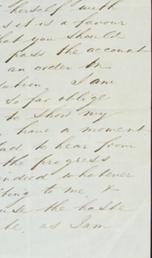 herself with
as it is a favour
that you should
pass the account
an order
I am
so far oblige
to shew my
have a moment
to hear from
the progress
indeed whatever
to me &
the haste
as I am